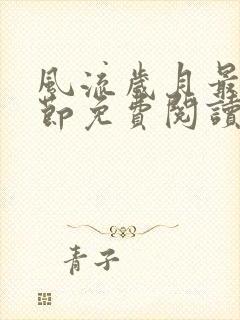 風流歲月最
節免費閱讀
青子